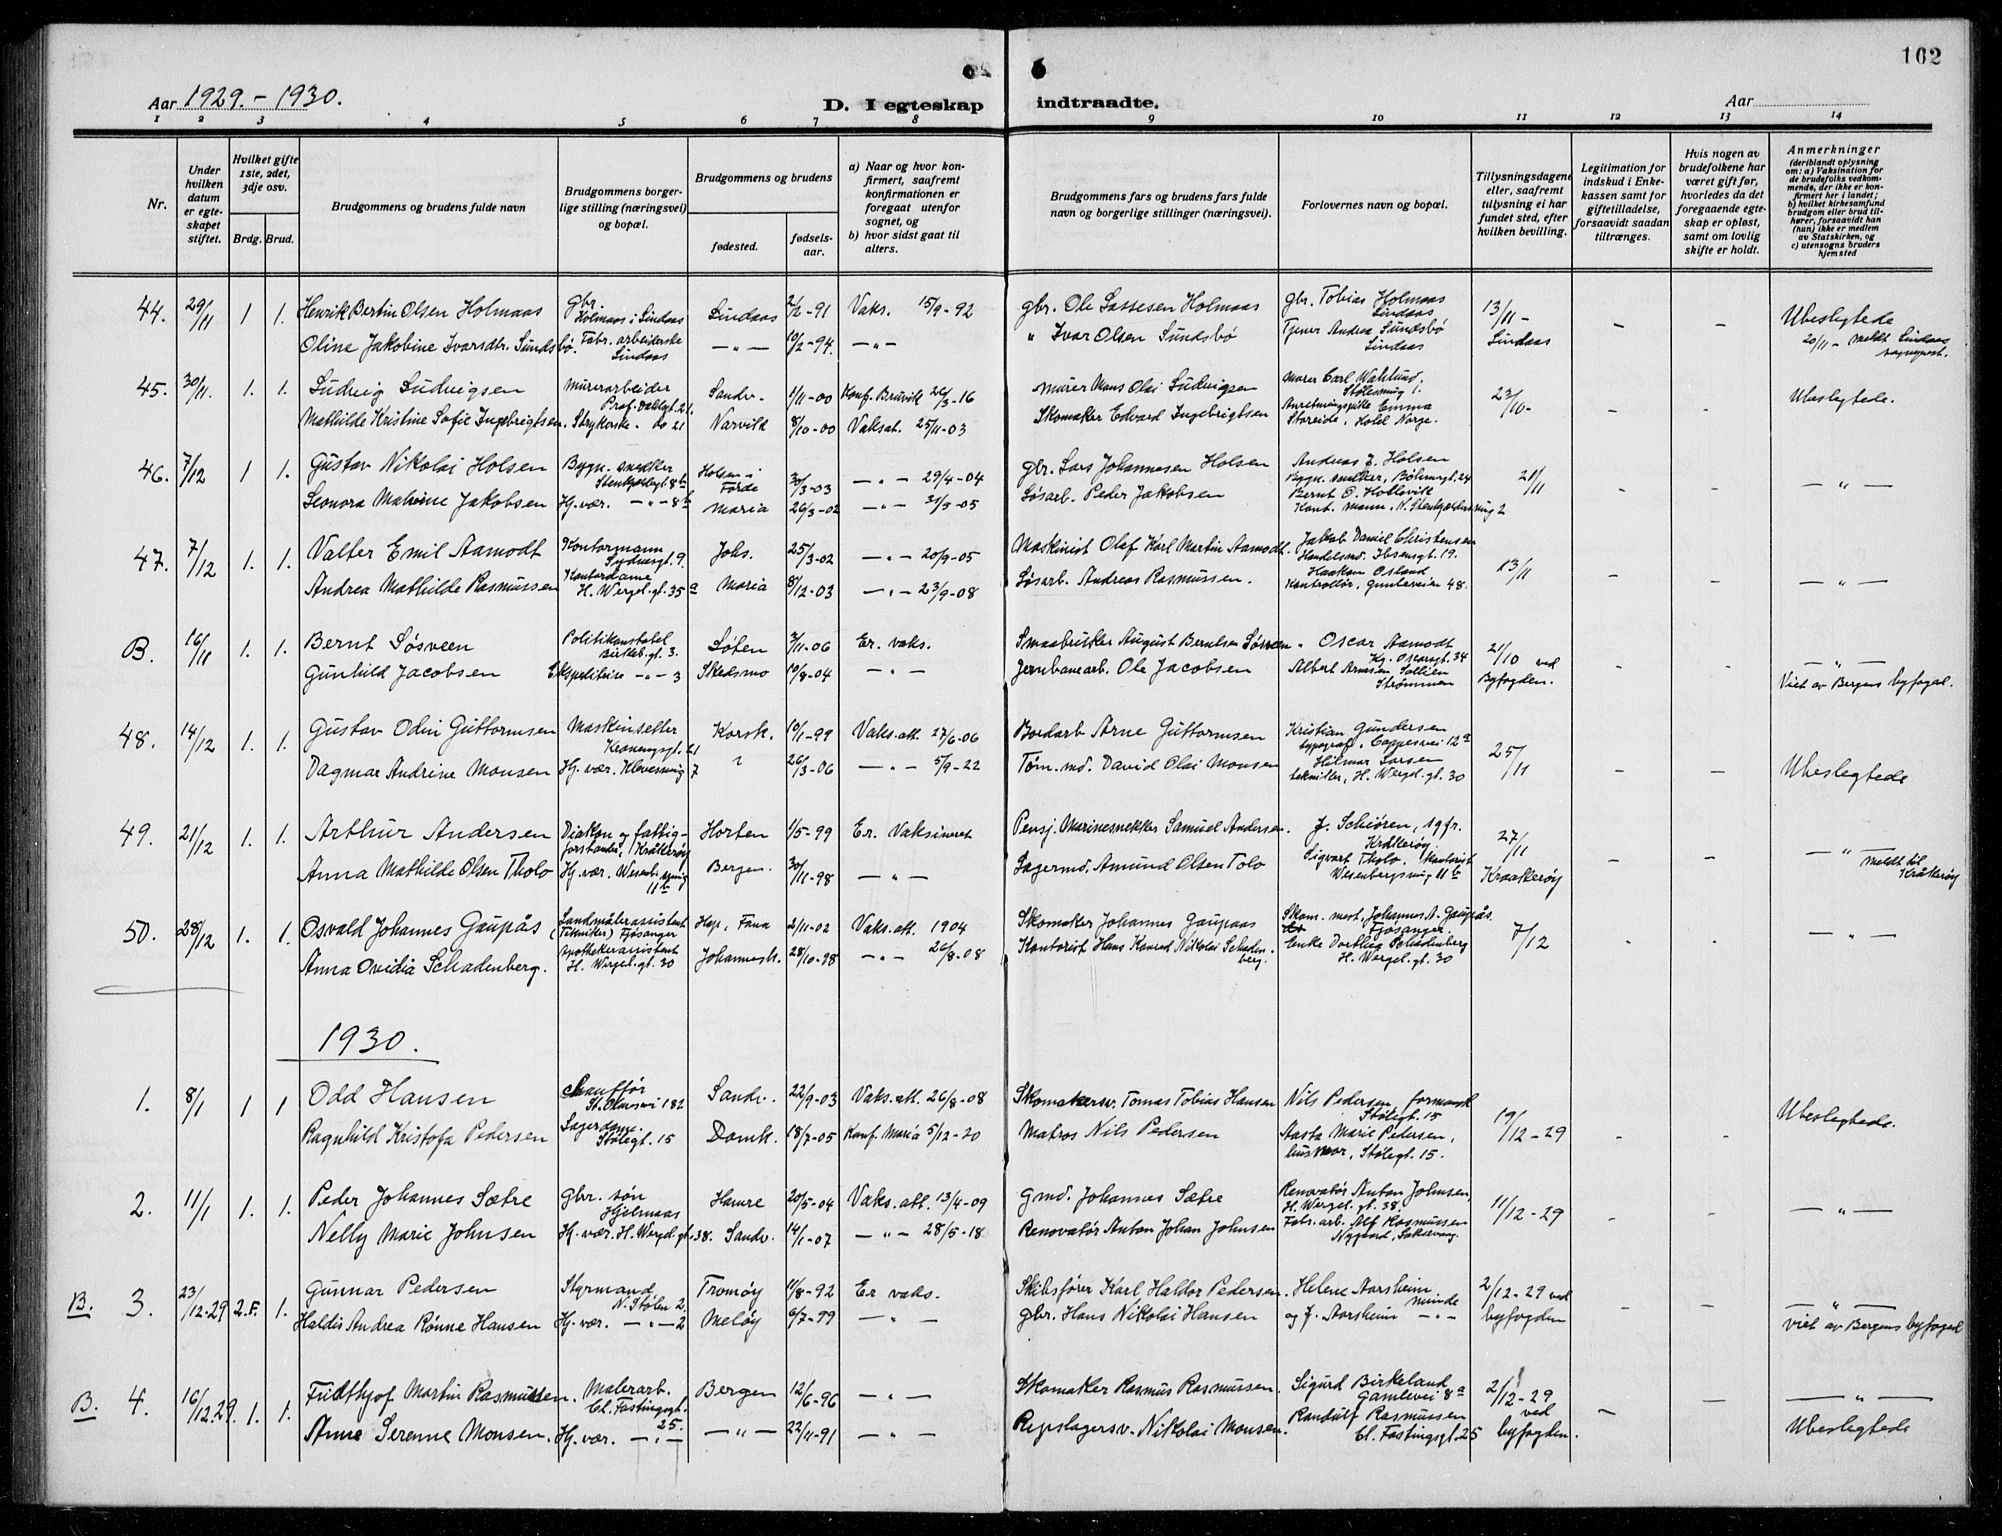 162
Aar 1929. - 1930.
D. I egteskap indtraadte.
Aar
1 2 3 4 5 6 7 8 9 10 11 12 13 14
Nr.
Under hvilken datum er egteskapet stiftet.
Hvilket gifte 1ste, 2det, 3dje osv.
Brdg. Brud.
Brudgommens og brudens fulde navn
Brudgommens borgerlige stilling (næringsvei) og bopæl.
Brudgommens og brudens
fødested.
fødselsaar.
a) Naar og hvor konfirmert, saafremt konfirmationen er foregaat utenfor sognet, og
b) hvor sidst gaat til alters.
Brudgommens fars og brudens fars fulde navn og borgerlige stillinger (næringsvei).
Forlovernes navn og bopæl.
Tillysningsdagene eller, saafremt tillysning ei har fundet sted, efter hvilken bevilling.
Legitimation for indskud i Enkekassen samt for giftetilladelse, forsaavidt saadan tiltrænges.
Hvis nogen av brudefolkene har været gift før, hvorledes da det foregaaende egteskap er opløst, samt om lovlig skifte er holdt.
Anmerkninger
(deriblandt oplysning om: a) Vaksination for de brudefolks vedkommende, der ikke er konfirmert her i landet; b) hvilket kirkesamfund brudgom eller brud tilhører, forsaavidt han (hun) ikke er medlem av Statskirken, og c) utensogns bruders hjemsted
44. 29/11 1 1. Henrik Bertin Olsen Holmaas gbr. Holmaas i Lindaas Lindaas 2/2-91 Vaks. 15/9-92 gbr. Ole Lassesen Holmaas gbr. Tobias Holmaas Lindaas 13/11 - Lindaas - - Ubeslegtede
Oline Jakobine Ivarsdtr. Sundsbø. Fabr. arbeiderske Lindaas -"- 10/2-94. -"- " Ivar Olsen Sundsbø Tjener Andrea Sundsbø Lindaas 20/11 - meldt Lindaas sognepest.
45. 30/11. 1. 1. Ludvig Ludvigsen Murerarbeider Prof. Dahlsgt. 21. Sandv. 1/11-00 Konf. Bruvik 26/3-16 Murer Mons Olai Ludvigsen Murer Carl Wahlund, Stølesmug 1. 23/10- - - Ubeslegtede.
Mathilde Kristine Sofie Ingebrigtsen. Strykerske - do 21 Narvik 8/10-00 Vaksat. 25/11-03 Skomaker Edvard Ingebrigtsen Anretningspike Emma Storeide, Hotel Norge.
46. 7/12 1 1. Gustav Nikolai Holsen Bygn. snekker Stenkjellegt 8b Holsen i Førde 30/3-03 -"- 29/4-04 gbr. Lars Johannesen Holsen Andreas J. Holsen Bygn. snekker, Bøhmergt. 24 21/11 - - -"-
Leonora Mathine Jakobsen Hj. vær. -"- 8b Maria 26/3-02 -"- 31/3-05 Løsarb. Peder Jakobsen Bernt O. Hollevik Kont. mann, N. Stenkjeldersmug 2
47. 7/12 1. 1. Valter Emil Aamodt Kontormann Sydnesgt. 9. Johs. 25/3-02 -"- 20/9-05 Maskinist Olaf Karl Martin Aamodt. Jakob Daniel Christensen Handelsmd. Ibsensgt. 19. 13/11 - - -"-
Andrea Mathilde Rasmussen Kontordame H. Wergel. gt. 35a Maria 8/12-03 -"- 23/9-08 Løsarb. Andreas Rasmussen. Haakon Osland Kontrollør, Gamleveien 48.
B. 16/11 1. 1. Bernt Løsveen Politikonstabel Birkeb. gt. 3. Løten 3/11-06 Er vaks. Smaabruker August Berntsen Løsveen. Oscar Aamodt Kg. Oscarsgt. 34 21/10 ved Byfogden. - - -"-
Gunhild Jacobsen Ekspeditrise -"- 3 Skedsmo 10/8-04 -"- Jernbanearb. Ole Jacobsen Albert Arnesen Sollien Strømmen Viet av Bergens byfogd.
48. 14/12 1. 1. Gustav Odin Guttormsen Maskinsetter Kronengsgt. 21 Korsk. 10/1-99 Vaks. att. 27/6-06 Bordarb Arne Guttormsen Kristian Gundersen typograf, Cappesvei 12a 25/11 - - Ubeslegtede
Dagmar Andrine Monsen Hj. vær. Kleversmug 7 26/3-06 -"- 5/9-22 Tøm. md. David Olai Monsen Hilmar Larsen tekniker, H. Wergel. gt. 30
49. 21/12 1. 1. Arthur Andersen Diakon og fattigforstander, Kråkerøy Horten 1/5-99 Er Vaksineret Pensj. Marinesnekker Samuel Andersen. J. Schiøren, 19 fr. Kråkerøy 27/11 Kraakerøy - - -"- meldt til Kråkerøy
Anna Mathilde Olsen Tholo Hj. vær. Wesenb. smug 11b Bergen. 30/11-98 -"- Lagermd. Amund Olsen Tolo Sigvart Tholo, Kontorist Wesenbergsmug 11b
50. 28/12 1. 1. Osvald Johannes Gaupås Landmålerassistent (Tekniker) Fjøsanger Hop, Fana 2/11-02 Vaks. att. 1904 Skomaker Johannes Gaupaas Skom. mest. Johannes A. Gaupås. Fjøsanger. 7/12 - - -"-
Anna Ovidia Schadenberg. Apothekerassistent H. Wergel. gt. 30 Johannesk. 28/10-98 -"- 26/8-08 Kontorist Hans Konrad Nikolai Schadenberg. Enke Dorthea Schadenberg H. Wergel. gt. 30
1930.
1. 8/1 1 1 Odd Hansen Chauffør St. Olavsvei 182 Sandv. 22/9-03 Vaks. att. 26/8-08 Skomakersv. Tomas Tobias Hansen Nils Pedersen, formansk Stølegt. 15 19/12-29 - - Ubeslegtede.
Ragnhild Kristofa Pedersen Lagerdame. Stølegt. 15 Domk. 18/7-05 Konf. Maria 5/12-20 Matros Nils Pedersen Aasta Marie Pedersen, husmor, Stølegt. 15.
2. 11/1 1. 1. Peder Johannes Sætre gbr. søn Hjelmaas Hamre 20/5-04 Vaks. att. 13/4-09 Gmd. Johannes Sætre Renovatør Anton Johnsen, H. Wergel. gt. 38. 11/12-29 - - -"-
Nelly Marie Johnsen Hj. vær. H. Wergel. gt. 38. Sandv. 14/1-07 -"- 28/5-18 Renovatør Anton Johan Johnsen Fabr. arb. Alf Rasmussen Nygaard, Laksevaag.
B. 3. 23/12-29 2. F. 1. Gunnar Pedersen Styrmand N. Stølen 2. Tromøy 11/8-92 Er vaks. Skibsfører Karl Haldor Pedersen. Helene Aarsheim Minde 2/12-29 ved byfogden - - -"-
Haldis Andrea Rønne Hansen Hj. vær. -"- 2 Meløy 6/7-99 -"- gbr. Hans Nikolai Hansen og J. Aarsheim -"- viet av Bergens byfogd
B. 4. 16/12.29. 1. 1. Fridthjof Martin Rasmussen. Malerarb. Cl. Fastingsgt. 25. Bergen 12/6-96 -"- Skomaker Rasmus Rasmussen. Sigurd Birkeland Gamlevei 8a 2/12-29 ved byfogden. - - -"-
Anne Serenne Monsen. Hj. vær. -"- -"- 22/11-91 -"- Repslagersv. Nikolai Monsen. Randulf Rasmussen Cl. Fastingsgt. 25 Ubeslegtede